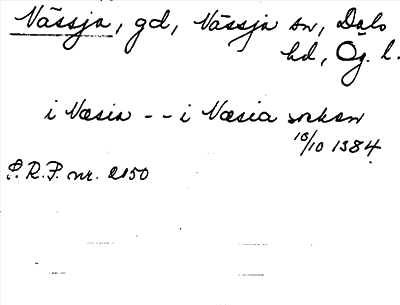 Vässja, gd, Vässja sn, Dals
hd, Ög. l.
i Væsia -- i Væsia sokn
18/10 1384
P.R.P. nr. 2150